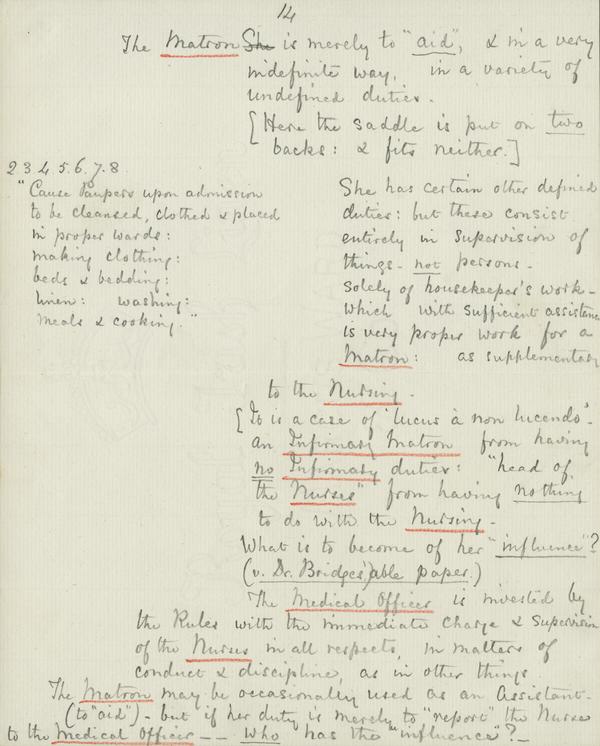 14
The Matron She is merely to "aid", & in a very
indefinite way, in a variety of
undefined duties.
[Here the saddle is put on two
backs: & fits neither.]
2 3 4. 5. 6. 7. 8.
"Cause Paupers upon admission
to be cleansed, clothed & placed
in proper wards:
making clothing:
beds & bedding:
linen: washing:
meals & cooking."
She has certain other defined
duties: but these consist
entirely in supervision of
things - not persons -
solely of housekeeper's work -
which with sufficient assistance
is very proper work for a
Matron: as supplementary
to the Nursing.
[It is a case of 'lucus à non lucendo' -
an Infirmary Matron from having
no Infirmary duties: "head of
the Nurses" from having nothing
to do with the Nursing -
What is to become of her "influence"?
(v. Dr. Bridges' able paper.)
The Medical Officer is invested by
the Rules with the immediate charge & supervision
of the Nurses in all respects, in matters of
conduct & discipline, as in other things.
The Matron may be occasionally used as an Assistant -
(to "aid") - but if her duty is merely to "report" the Nurse
to the Medical Officer -- Who has the "influence"? -